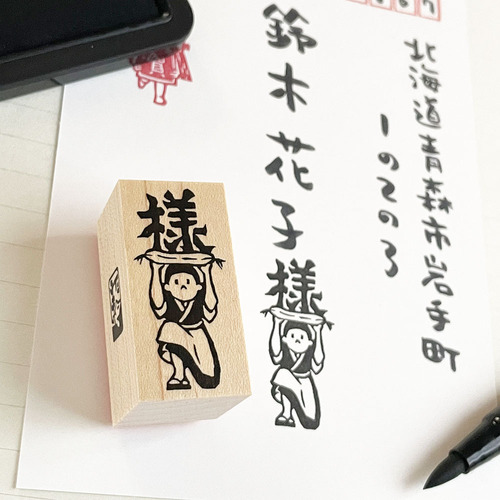 北海道青森市岩手町
1の2の3
鈴木花子様
様